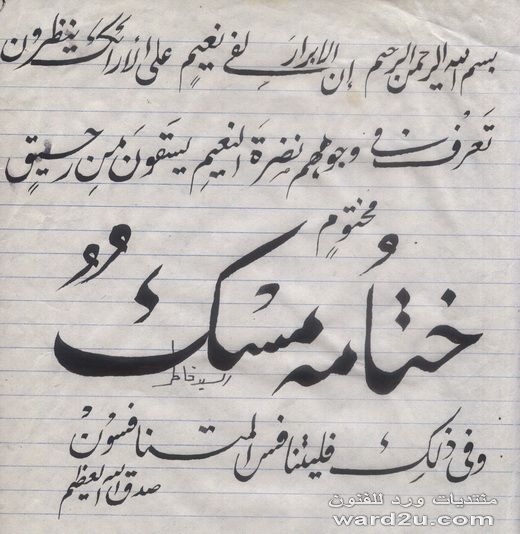 بسم الله الرحمن الرحيم إن الأبرار لفي نعيمٍ على الأرائك ينظرون
تَعرفُ في وجوههم نضرةَ النعيمِ يسقون من رحيقٍ
مختومٍ
ختامُه مسكٌ
السيد خاطر
وفي ذلك فليتنافس المتنافسونْ
صدق الله العظيم
منتديات ورد للفنون
ward2u.com